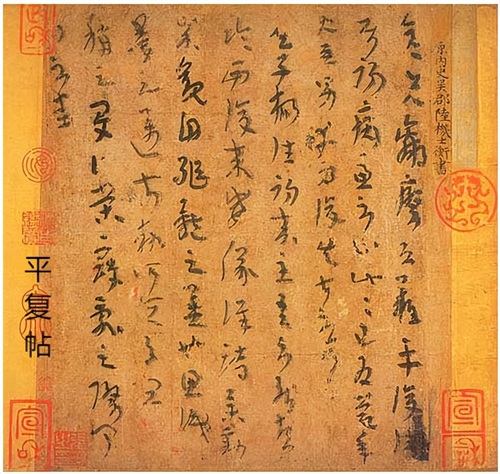 原內史吳郡陸機士衡書
先羸瘵恐難平復往屬
初病慮不止此此已為慶承
使唯男幸為復失前憂耳
吳子楊往初來主吾不能盡
臨西復來威儀詳跱舉動
成觀自軀體之美也思識
量之邁前執所恒有宜
稱之夏伯榮寇亂之際聞問
不悉
平复帖